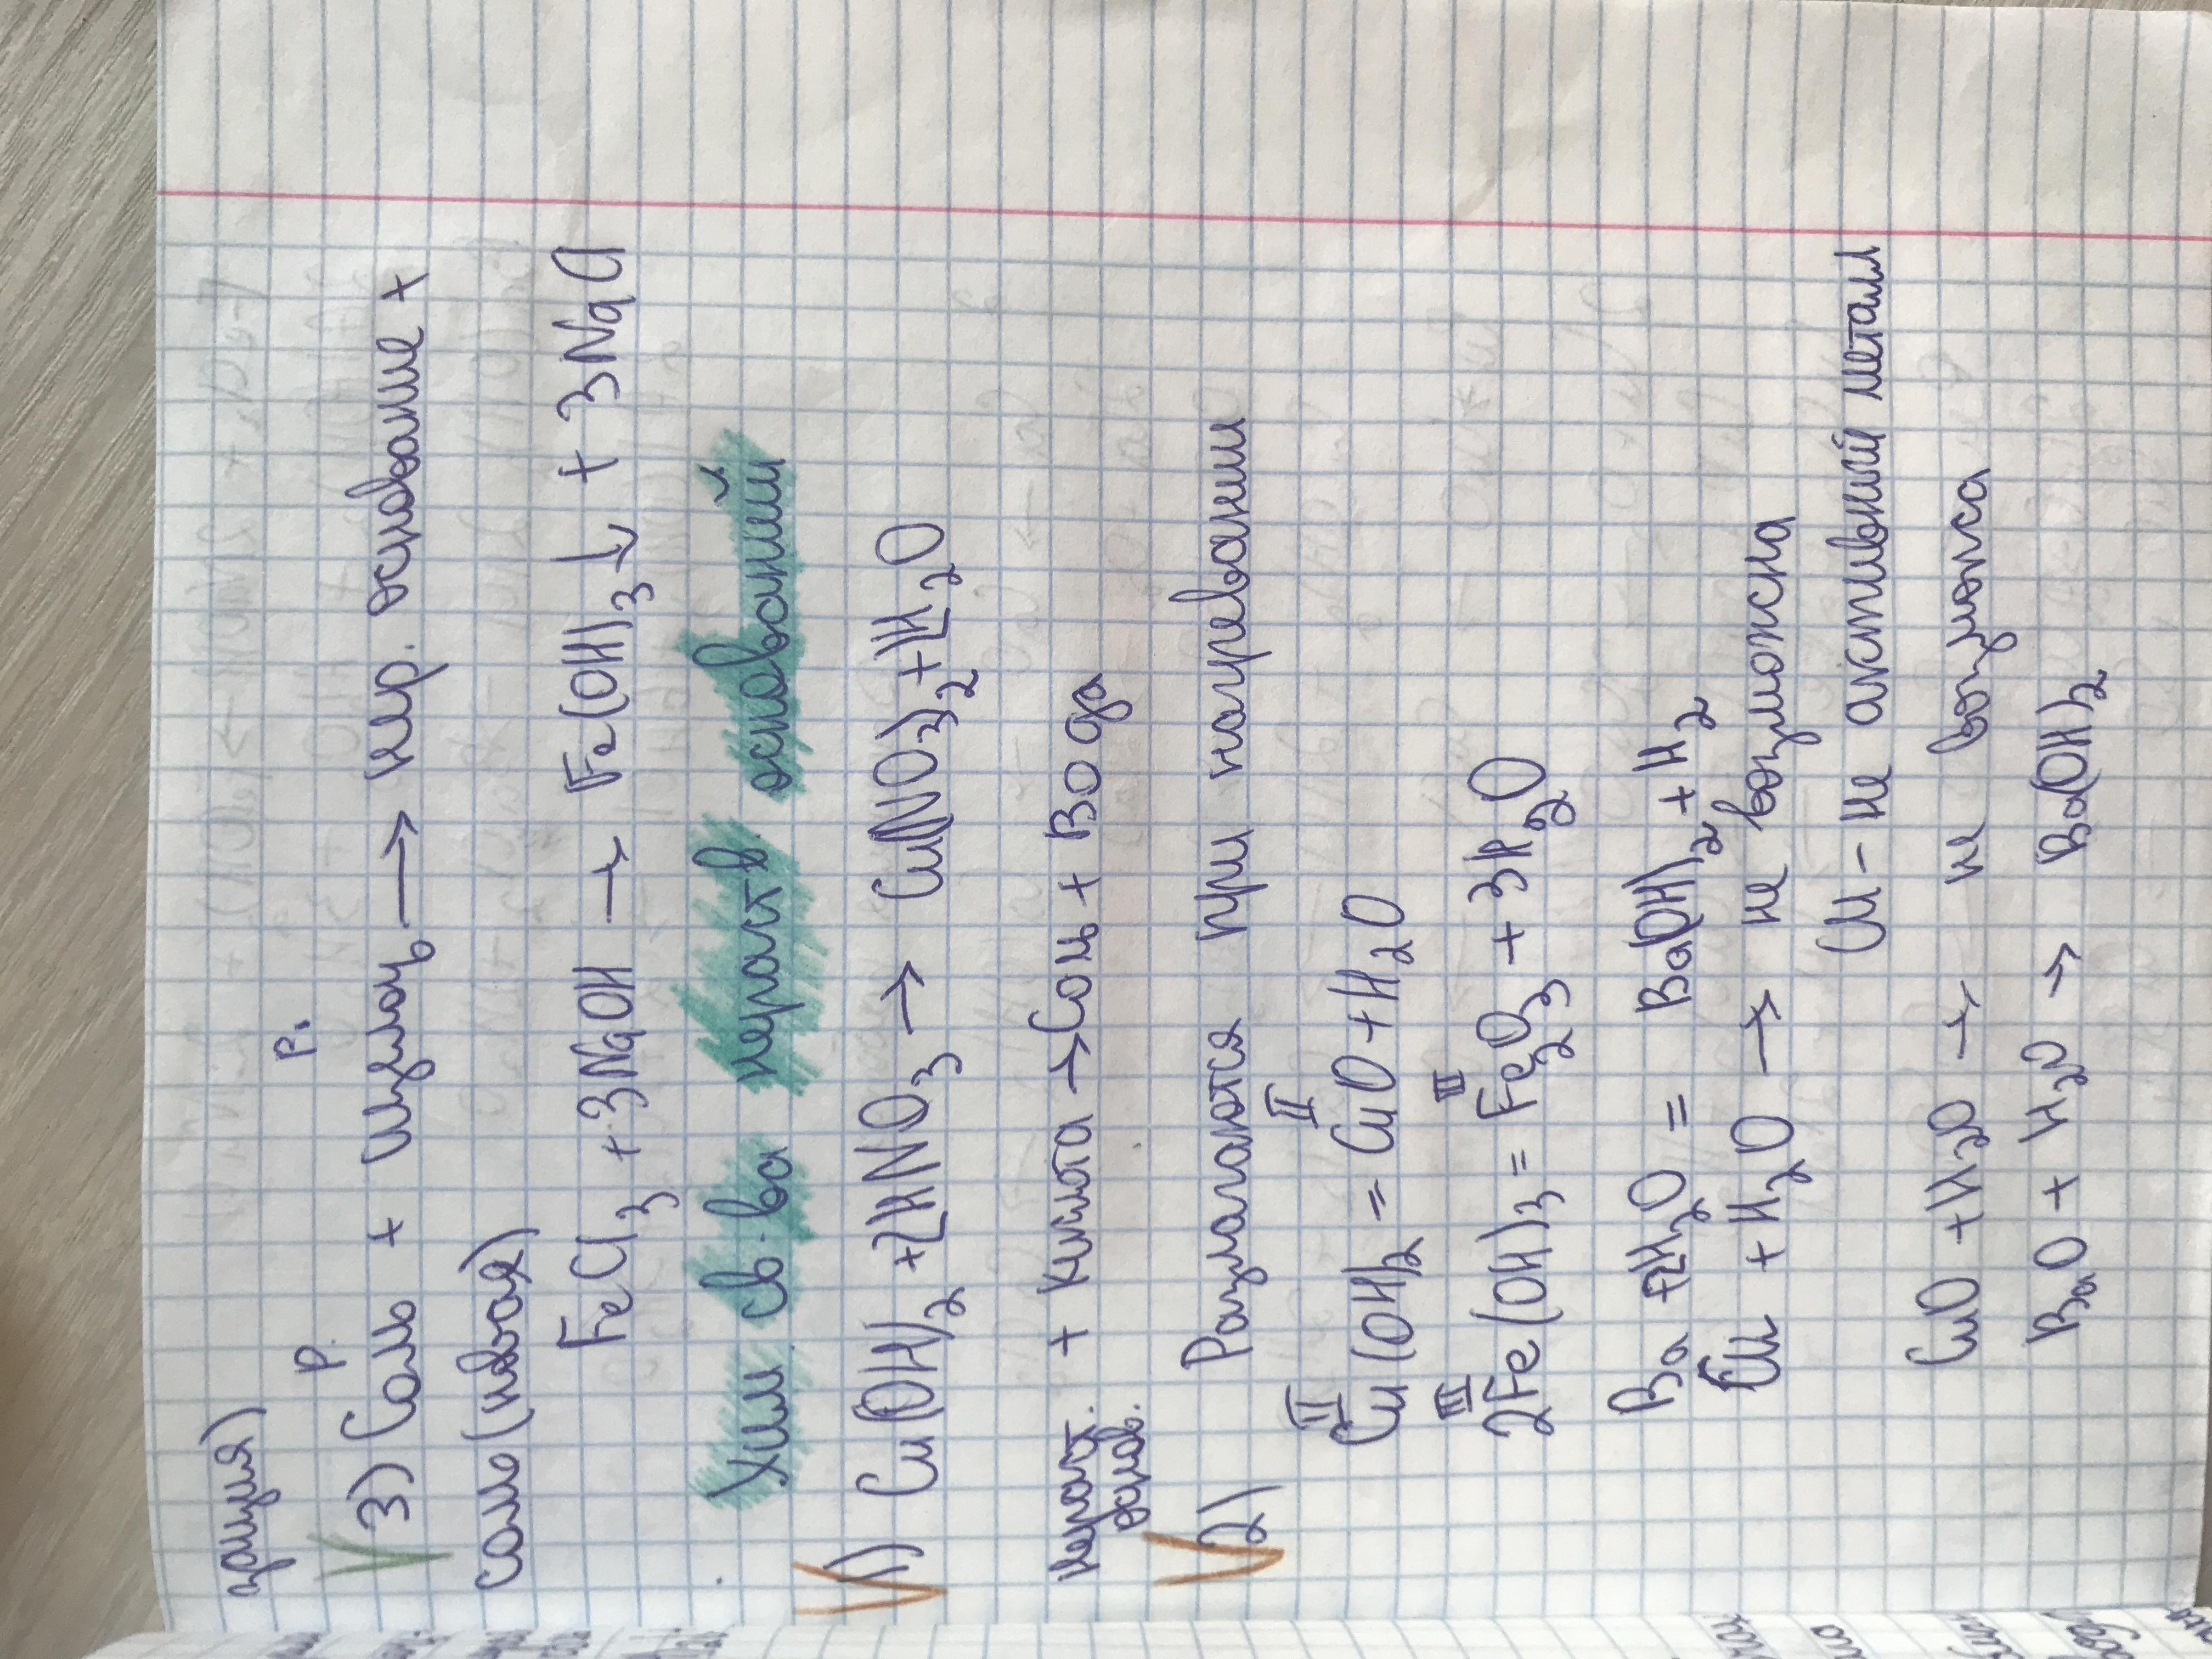 зация)
р. р.
3) Соль + щелочь → нер. основание +
соль (новая)
FeCl₃ + 3NaOH → Fe(OH)₃↓ + 3NaCl
Хим. св-ва нераств. оснований
1) Cu(OH)₂ + 2HNO₃ → Cu(NO₃)₂ + 2H₂O
нераст. + кислота → Соль + Вода
основ.
2) Разлагаются при нагревании
II II
Cu(OH)₂ = CuO + H₂O
III III
2Fe(OH)₃ = Fe₂O₃ + 3H₂O
Ba + 2H₂O = Ba(OH)₂ + H₂
Cu + H₂O → не возможна
Cu - не активный металл
CuO + H₂O → не возможна
BaO + H₂O → Ba(OH)₂